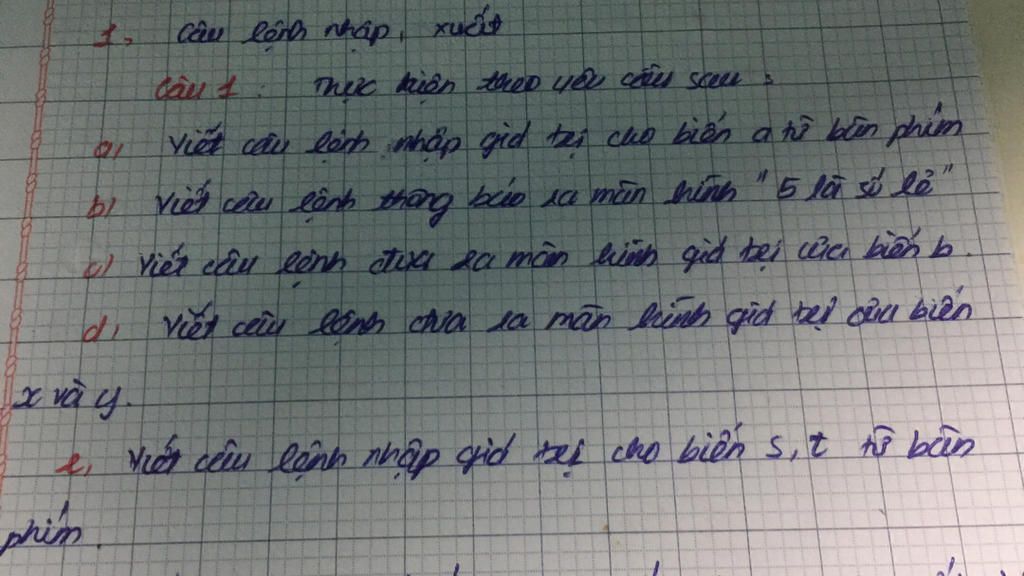 1. Câu lệnh nhập, xuất
Câu 1: Thực hiện theo yêu cầu sau:
a) Viết câu lệnh nhập giá trị cho biến a từ bàn phím
b) Viết câu lệnh thông báo ra màn hình "5 là số lẻ"
c) Viết câu lệnh đưa ra màn hình giá trị của biến b.
d) Viết câu lệnh đưa ra màn hình giá trị của biến
x và y.
e, Viết câu lệnh nhập giá trị cho biến s, t từ bàn
phím.